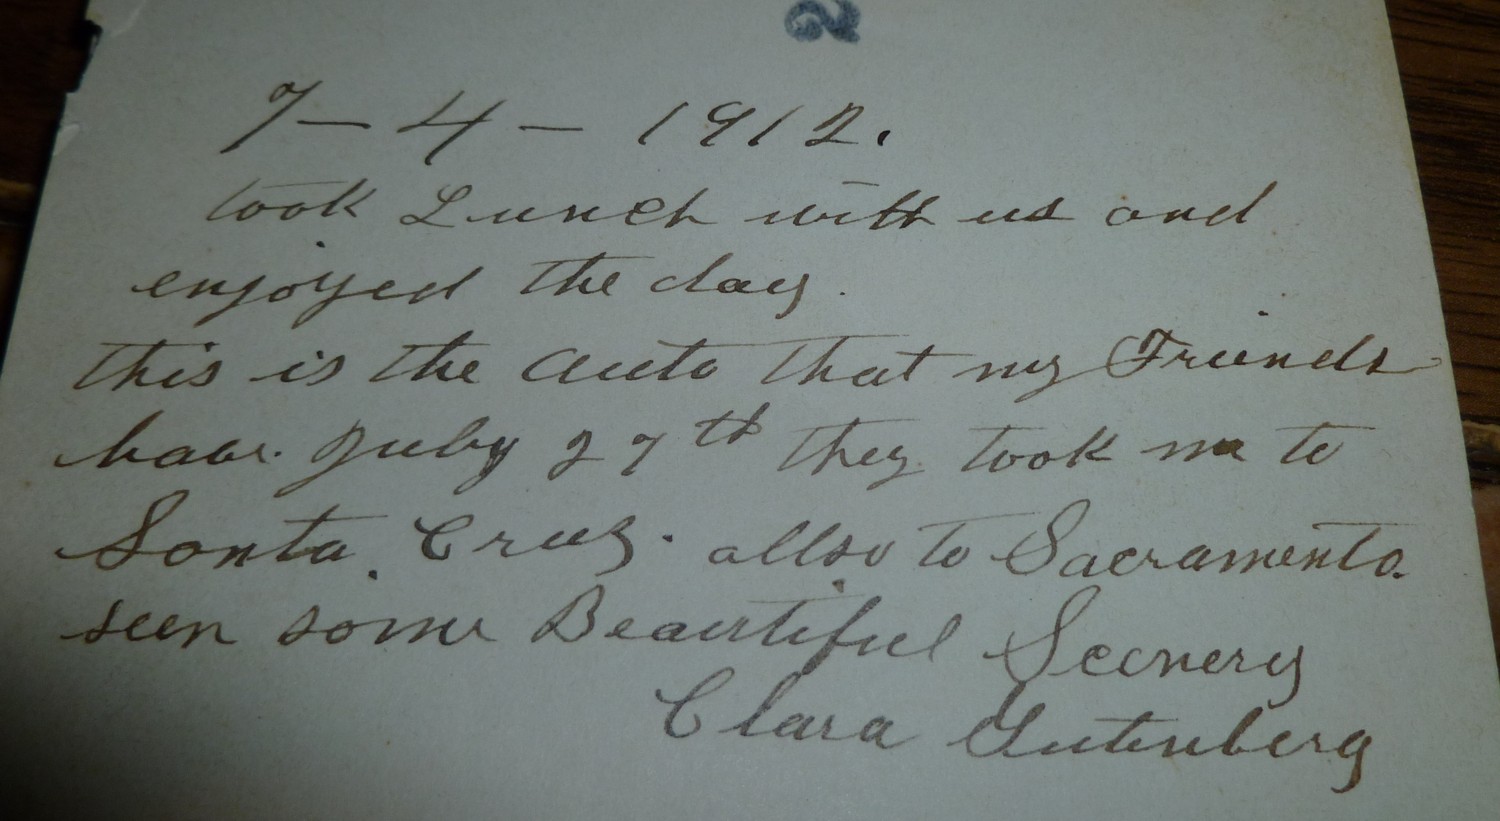 2
7-4-1912.
took Lunch with us and
enjoyed the day.
this is the auto that my Friends
have. July 27th they took me to
Santa Cruz. allso to Sacramento.
seen some Beautiful Scenery
Clara Gutenberg